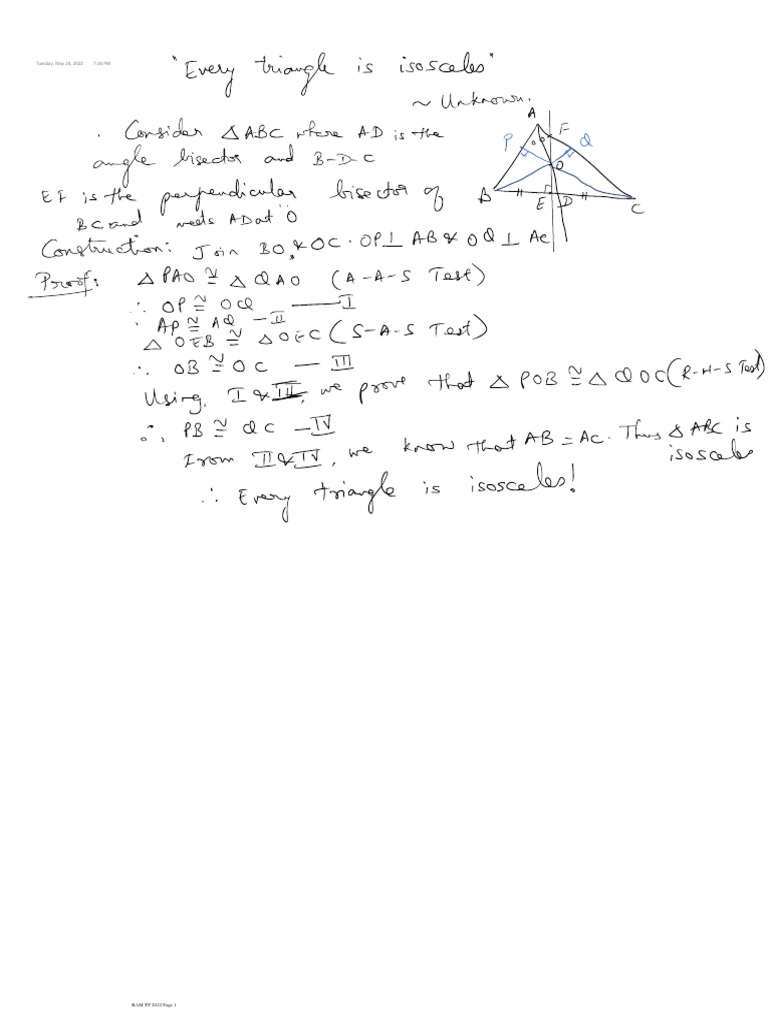 Tuesday, May 24, 2022 7:36 PM
"Every triangle is isosceles"
~ Unknown.
. Consider △ABC where AD is the
angle bisector and B-D-C
EF is the perpendicular bisector of
BC and meets AD at "O
A
F
P
Q
O
B
E
D
C
Construction: Join BO & OC. OP⊥ AB & OQ ⊥ AC
Proof: △ PAO ≅ △ QAO (A-A-S Test)
∴ OP ≅ OQ — I
∴ AP ≅ AQ — II
△ OEB ≅ △OEC (S-A-S Test)
∴ OB ≅ OC — III
Using, I & III, we prove that △ POB ≅ △ QOC (R-H-S Test)
∴, PB ≅ QC — IV
From II & IV, we know that AB = AC. Thus △ ABC is
isosceles
∴ Every triangle is isosceles!